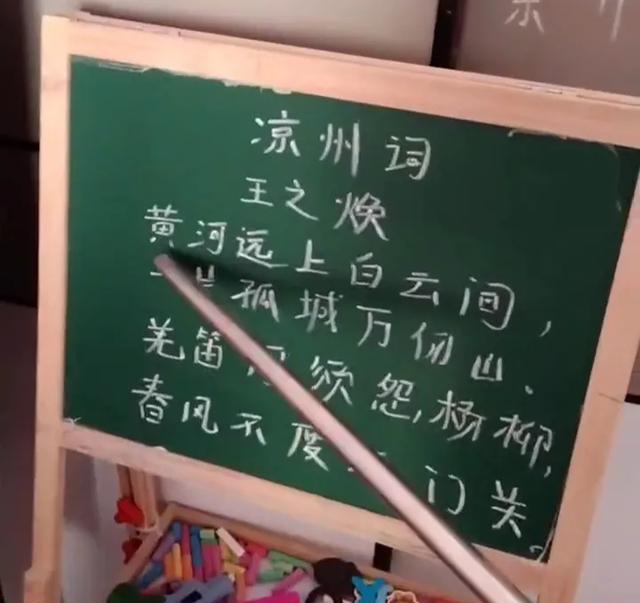 凉州词
王之焕
黄河远上白云间,
一片孤城万仞山.
羌笛须怨,杨柳,
春风不度门关.